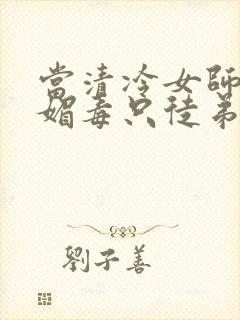 當清冷女師
媚毒只徒弟
劉子善